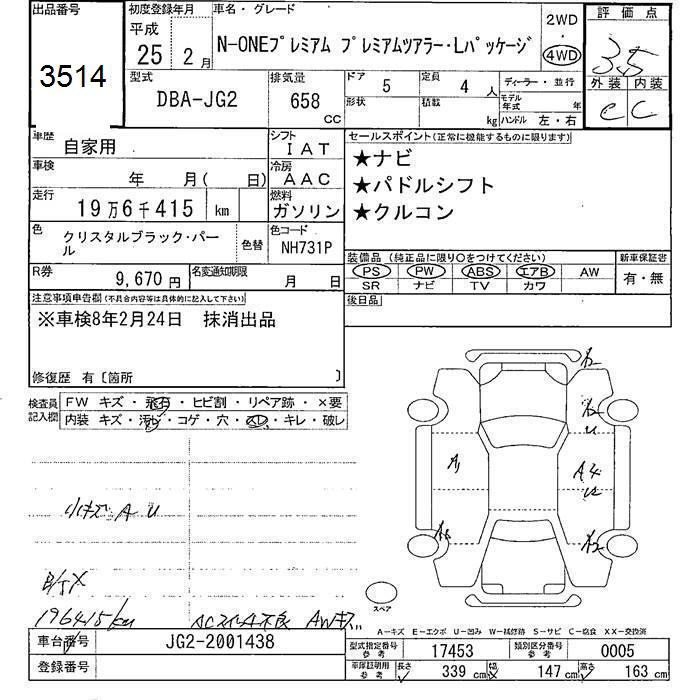 出品番号
3514
初度登録年月
平成
25 2月
車名・グレード
N-ONEプレミアム プレミアムツアラー・Lパッケージ
2WD
・
4WD
評価点
3.5
外装 内装
C
型式
DBA-JG2
排気量
658
CC
ドア 5
定員 4 人
形状
積載 kg
ディーラー・並行
モデル年式 年
ハンドル 左・右
車歴 自家用
シフト
IAT
車検 年 月( 日)
冷房
AAC
走行
19万6千415 km
燃料
ガソリン
色
クリスタルブラック・パール
色替
色コード
NH731P
R券
9,670円
名変通知期限 月 日
セールスポイント(正常に機能するものに限ります)
★ナビ
★パドルシフト
★クルコン
装備品(純正品に限り○をつけてください)
PS PW ABS エアB AW
SR ナビ TV カワ
新車保証書
有・無
後日品
注意事項申告欄(不具合内容等は具体的に記入して下さい)
※車検8年2月24日 抹消出品
修復歴 有〔箇所 〕
検査員記入欄
FW キズ・飛石・ヒビ割・リペア跡・×要
内装 キズ・汚レ・コゲ・穴・スレ・キレ・破レ
小キズ A U
196415km
AW
A2
A2
U
A1
A4
U
A2
スペア
A−キズ E−エクボ U−凹み W−補修跡 S−サビ C−腐食 XX−交換済
車台番号 JG2-2001438
登録番号
型式指定番号 参考 17453
類別区分番号 参考 0005
車庫証明用 参考 長さ 339 cm 幅 147 cm 高さ 163 cm